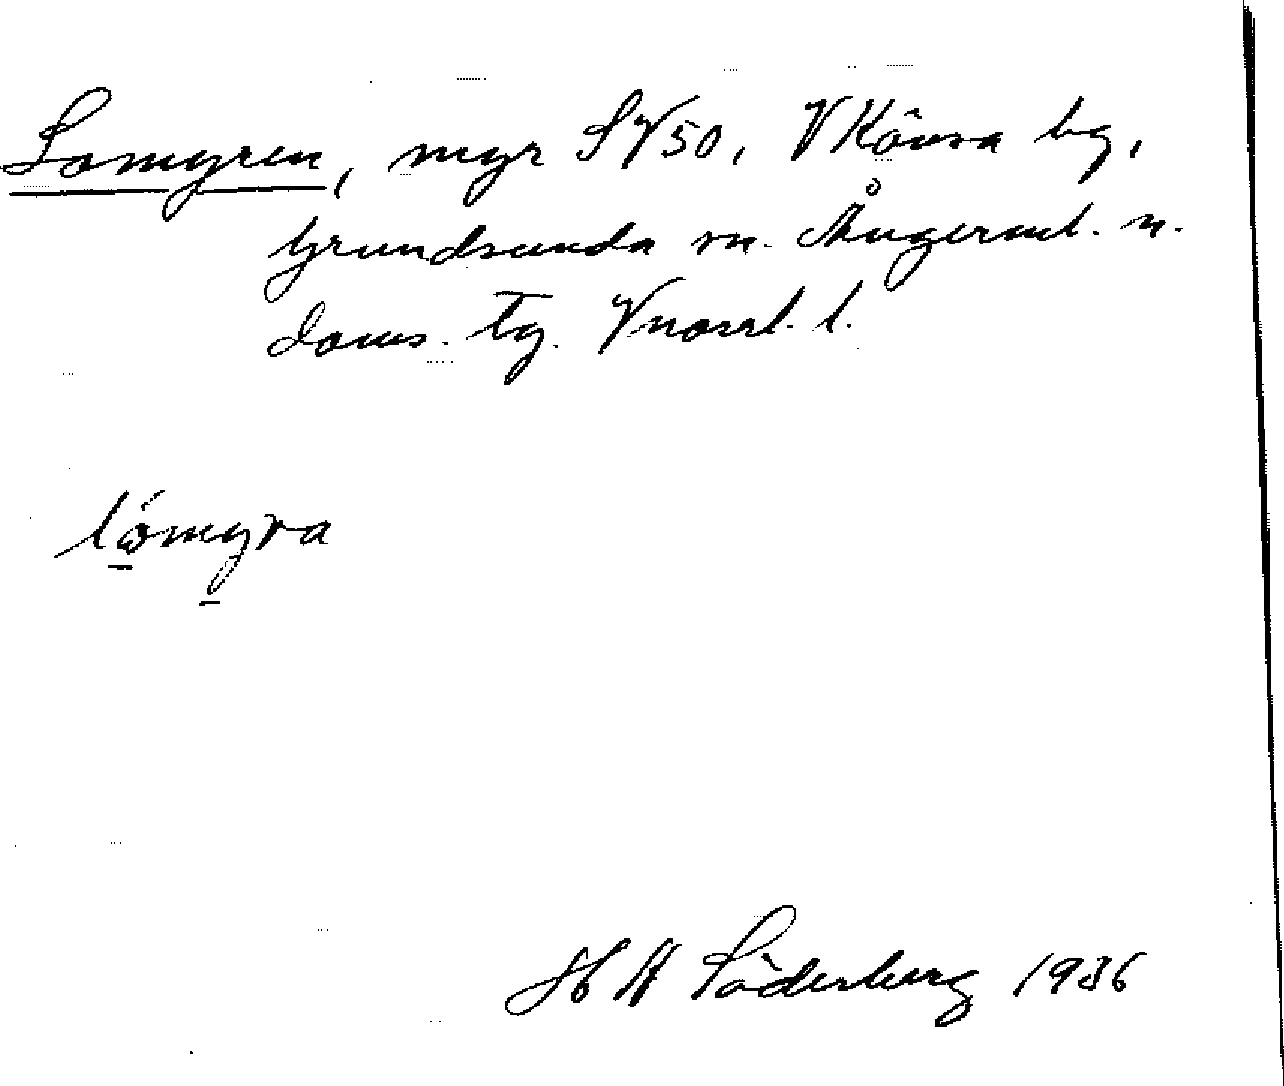 Lomyren, myr SV50, V Könsa by,
Grundsunda sn. Ångerml. n.
doms. tg. Vnorrl. l.
lómyra
H W Söderberg 1936